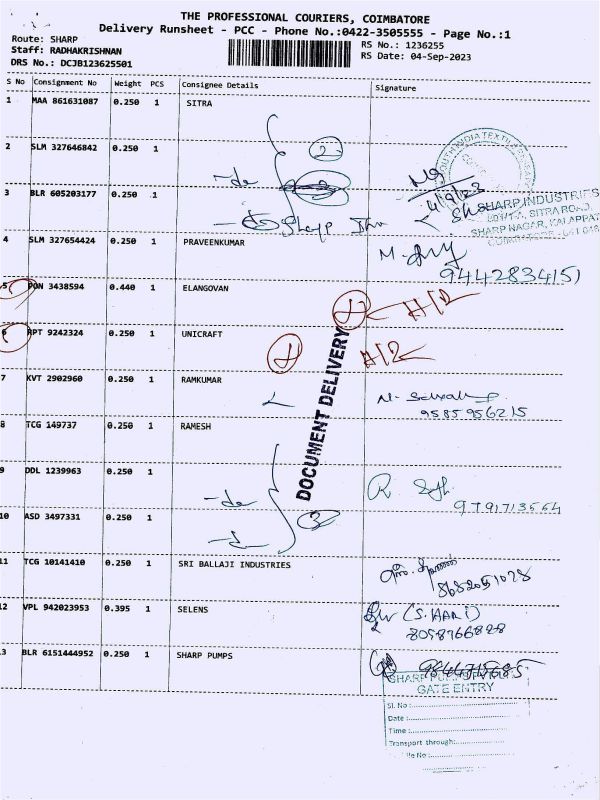 THE PROFESSIONAL COURIERS, COIMBATORE
Delivery Runsheet - PCC - Phone No.:0422-3505555 - Page No.:1
Route: SHARP RS No.: 1236255
Staff: RADHAKRISHNAN RS Date: 04-Sep-2023
DRS No.: DCJB123625501
S No Consignment No Weight PCS Consignee Details Signature
1 MAA 861631087 0.250 1 SITRA
2 SLM 327646842 0.250 1
2
4/9/23
3 BLR 605203177 0.250 1
SHARP INDUSTRIES
SITRA ROAD,
SHARP NAGAR, KALAPPAT
Sharp
4 SLM 327654424 0.250 1 PRAVEENKUMAR
9442834151
5 PON 3438594 0.440 1 ELANGOVAN
6 RPT 9242324 0.250 1 UNICRAFT
DOCUMENT DELIVERY
7 KVT 2902960 0.250 1 RAMKUMAR
9585956215
8 TCG 149737 0.250 1 RAMESH
9 DDL 1239963 0.250 1
9791713564
10 ASD 3497331 0.250 1
3
11 TCG 10141410 0.250 1 SRI BALLAJI INDUSTRIES
8682051028
12 VPL 942023953 0.395 1 SELENS
(S. HARI)
8058766828
13 BLR 6151444952 0.250 1 SHARP PUMPS
SHARP
GATE ENTRY
Sl. No :
Date :
Time :
Transport through: